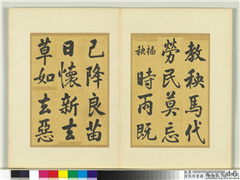 教秧馬代
勞民莫忘
插秧
時雨既
已降良苗
日懷新去
草如去惡